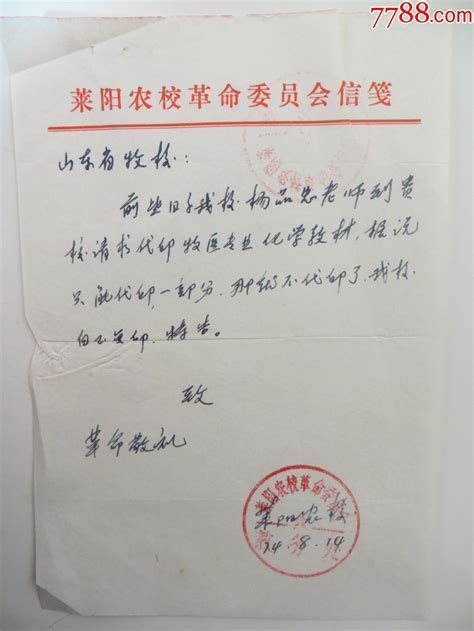 7788.com
莱阳农校革命委员会信笺
山东省牧校：
前些日子我校杨品忠老师到贵
校请求代印牧医专业化学教材，据说
只能代印一部分，那就不代印了，我校
自己复印，特告。
致
革命敬礼
莱阳农校革命委员会
莱阳农校
74.8.14